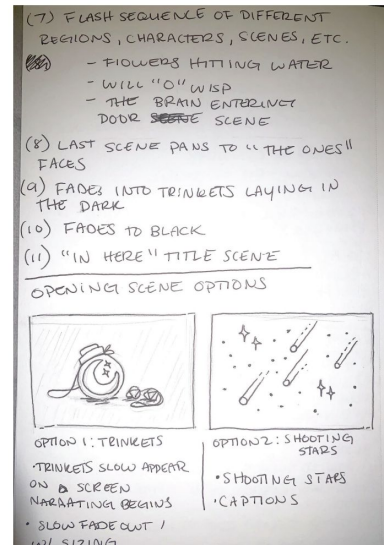 (7) FLASH SEQUENCE OF DIFFERENT
REGIONS, CHARACTERS, SCENES, ETC.
- FLOWERS HITTING WATER
- WILL "O" WISP
- THE BRAIN ENTERING
DOOR SCENE
(8) LAST SCENE PANS TO "THE ONES"
FACES
(9) FADES INTO TRINKETS LAYING IN
THE DARK
(10) FADES TO BLACK
(11) "IN HERE" TITLE SCENE
OPENING SCENE OPTIONS
OPTION 1: TRINKETS
• TRINKETS SLOW APPEAR
ON SCREEN
NARRATING BEGINS
• SLOW FADE OUT /
W/ SIZING
OPTION 2: SHOOTING
STARS
• SHOOTING STARS
• CAPTIONS